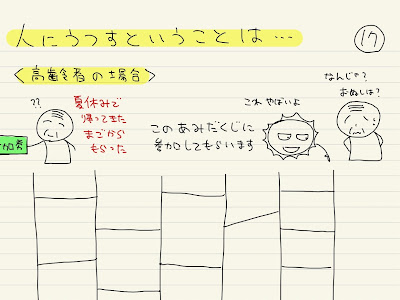 人にうつすということは…
17
<高齢者の場合>
??
夏休みで
帰ってきた
まごから
もらった
このあみだくじに
参加してもらいます
これ やばいよ
なんじゃ?
おぬしは?